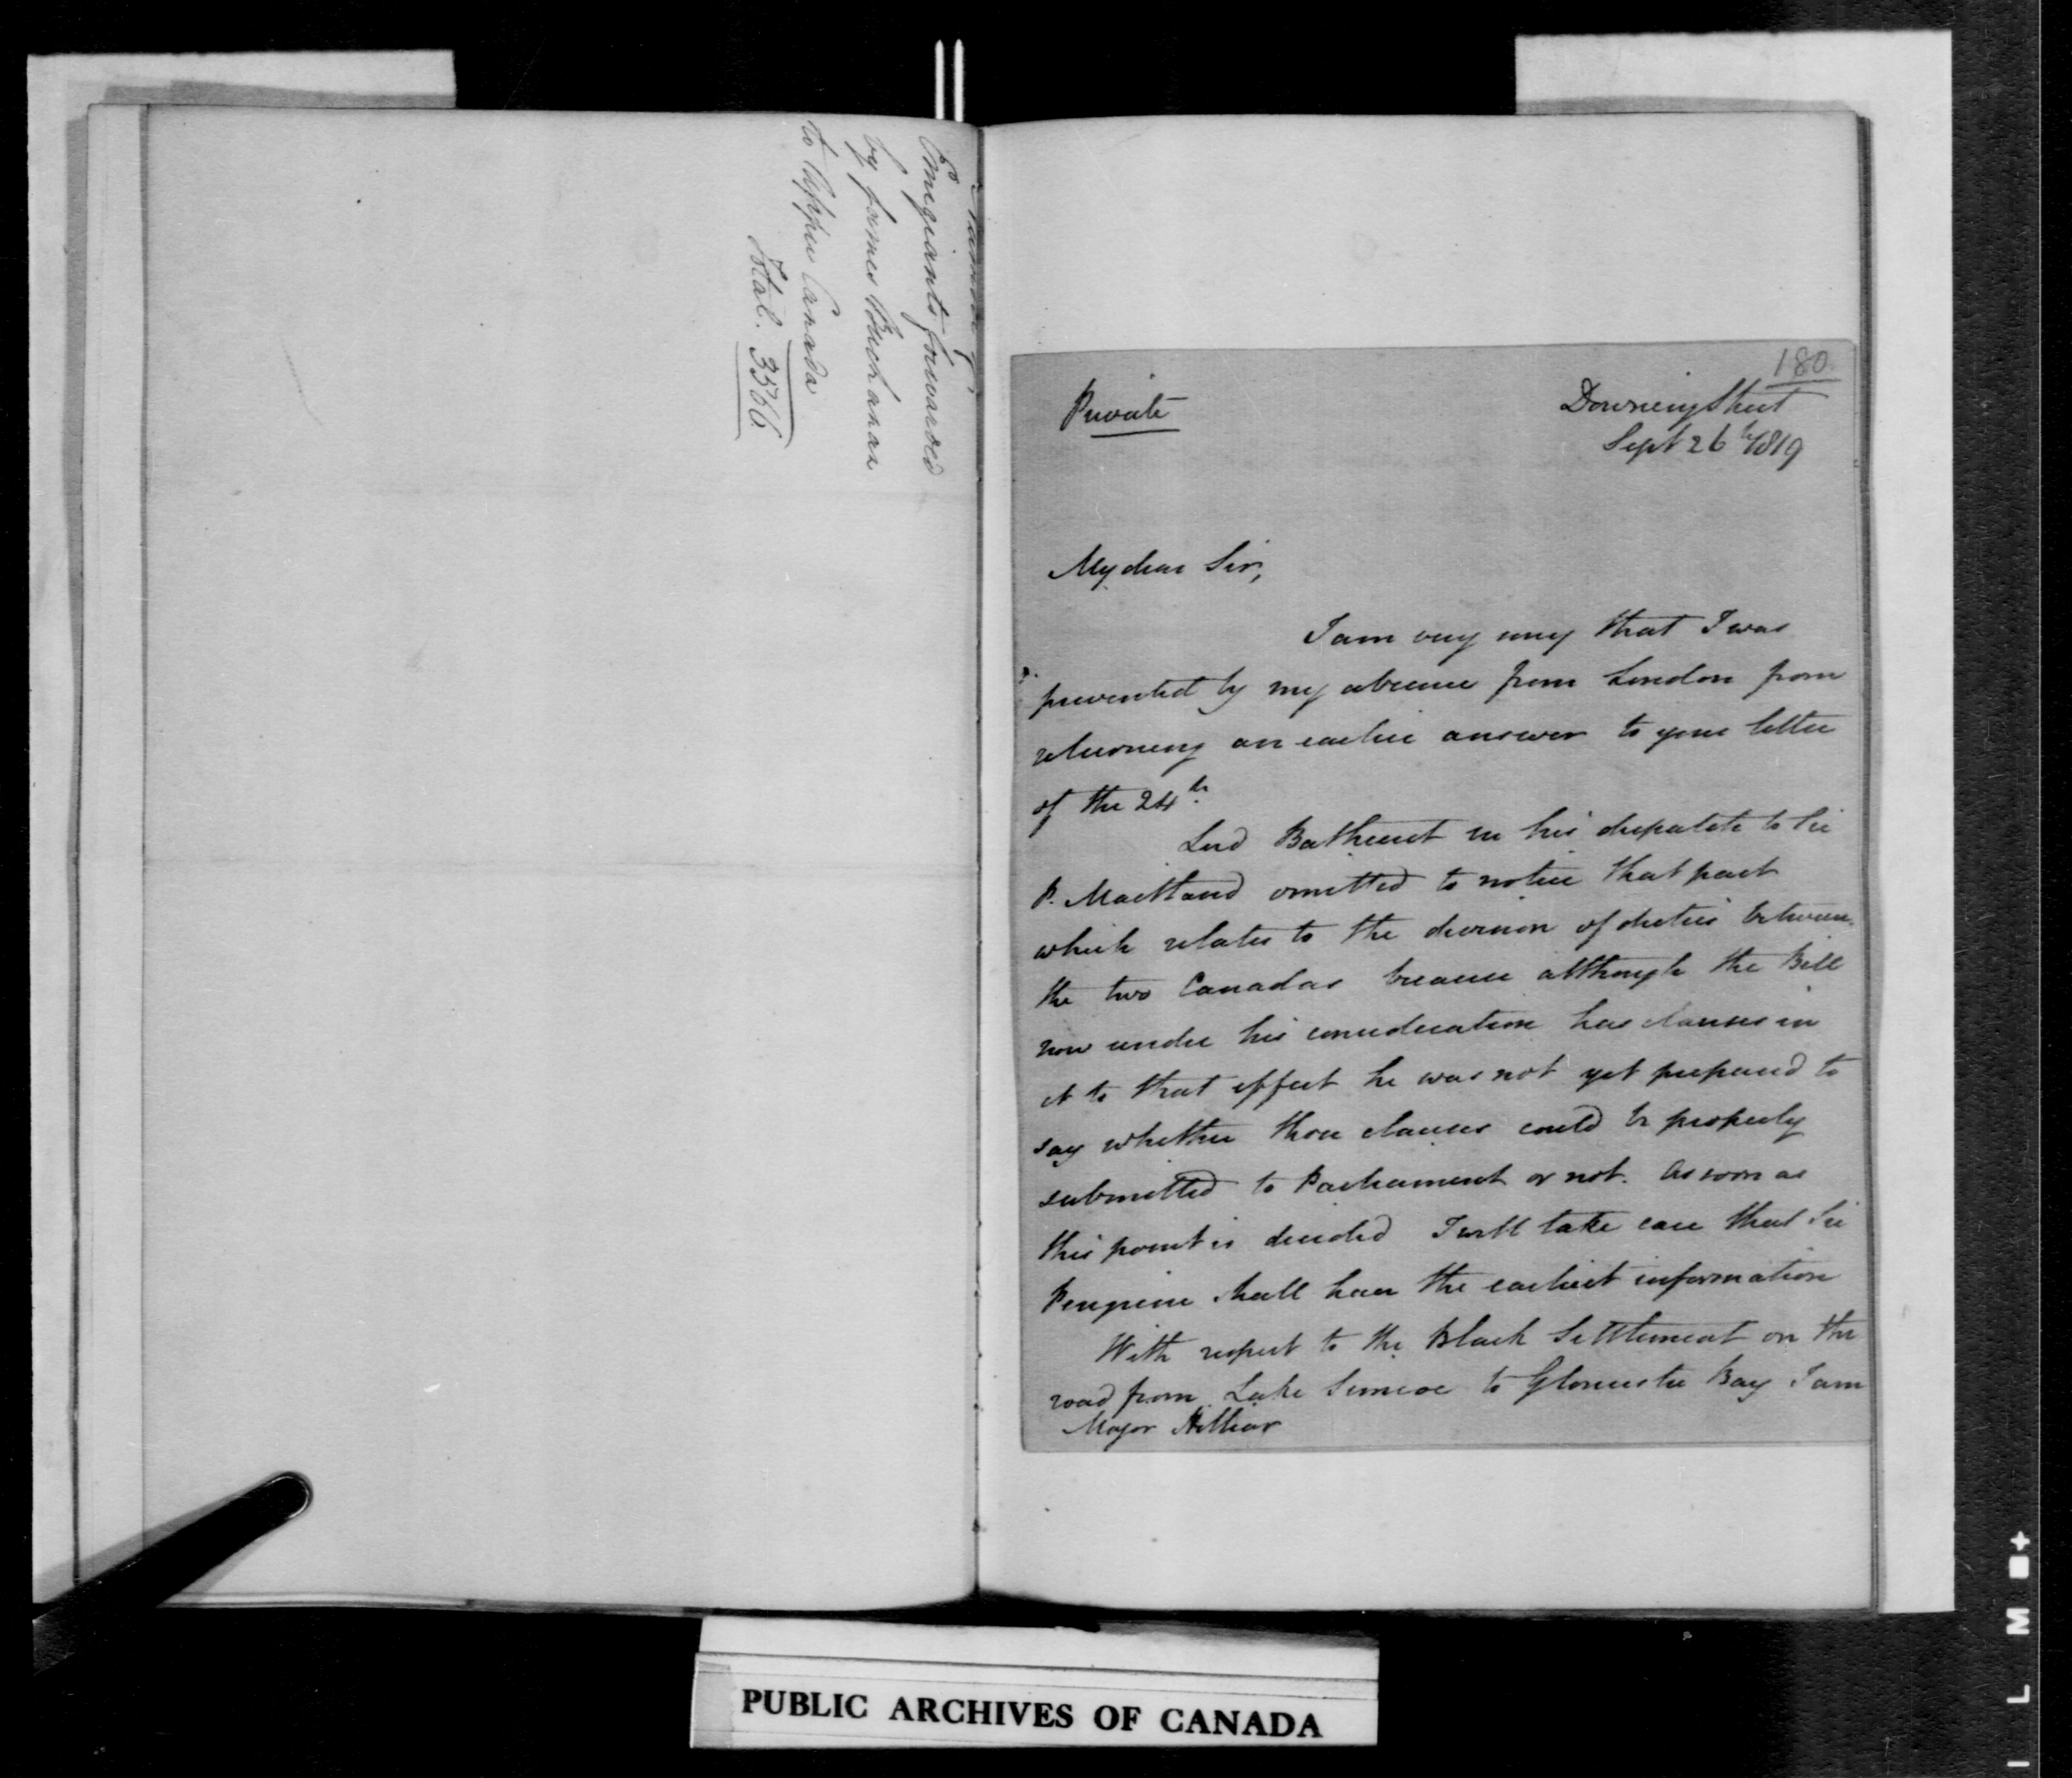 Emigrants forwarded
by James Buchanan
to Upper Canada
Total. 3566
180.
Private
Downing Street
Sept 26th 1819
My dear Sir,
I am very sorry that I was
prevented by my absence from London from
returning an earlier answer to your letter
of the 24th.
Lord Bathurst in his dispatch to Sir
P. Maitland omitted to notice that part
which relates to the division of duties between
the two Canadas because although the Bill
now under his consideration has clauses in
it to that effect he was not yet prepared to
say whether those clauses could be properly
submitted to Parliament or not. As soon as
this point is decided I will take care that Sir
Peregrine shall have the earliest information
With respect to the Black Settlement on the
road from Lake Simcoe to Gloucester Bay I am
Major Hillier
PUBLIC ARCHIVES OF CANADA
I L M